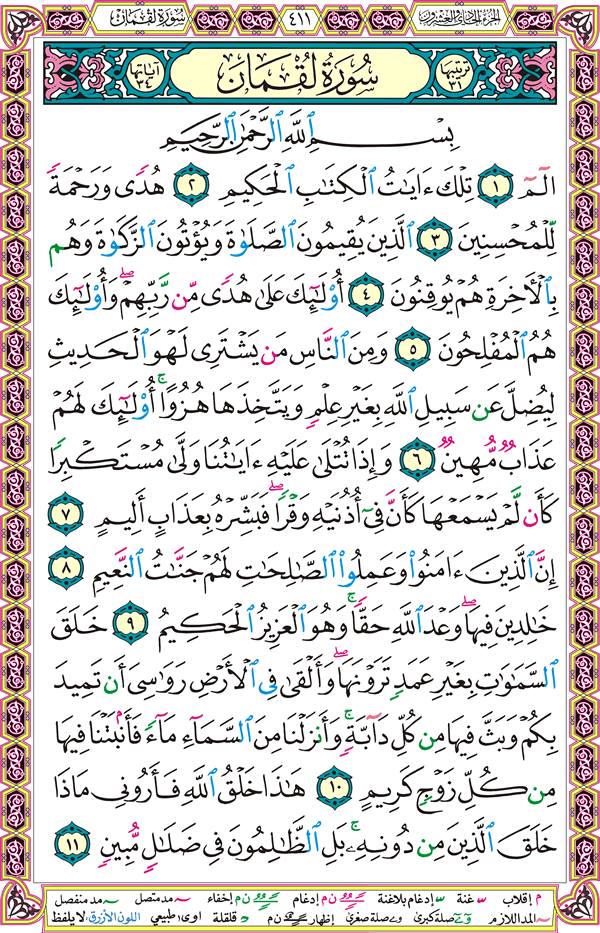 الجزء الحادي والعشرون ٤١١ سورة لقمان
ترتيبها ٣١ سُورَةُ لُقْمَانَ آياتها ٣٤
بِسْمِ ٱللَّهِ ٱلرَّحْمَٰنِ ٱلرَّحِيمِ
الٓمٓ ١ تِلْكَ ءَايَاتُ ٱلْكِتَابِ ٱلْحَكِيمِ ٢ هُدًى وَرَحْمَةً
لِّلْمُحْسِنِينَ ٣ ٱلَّذِينَ يُقِيمُونَ ٱلصَّلَوٰةَ وَيُؤْتُونَ ٱلزَّكَوٰةَ وَهُم
بِٱلْأَخِرَةِ هُمْ يُوقِنُونَ ٤ أُوْلَٰٓئِكَ عَلَىٰ هُدًى مِّن رَّبِّهِمْۖ وَأُوْلَٰٓئِكَ
هُمُ ٱلْمُفْلِحُونَ ٥ وَمِنَ ٱلنَّاسِ مَن يَشْتَرِى لَهْوَ ٱلْحَدِيثِ
لِيُضِلَّ عَن سَبِيلِ ٱللَّهِ بِغَيْرِ عِلْمٍ وَيَتَّخِذَهَا هُزُوًاۚ أُوْلَٰٓئِكَ لَهُمْ
عَذَابٌ مُّهِينٌ ٦ وَإِذَا تُتْلَىٰ عَلَيْهِ ءَايَٰتُنَا وَلَّىٰ مُسْتَكْبِرًا
كَأَن لَّمْ يَسْمَعْهَا كَأَنَّ فِىٓ أُذُنَيْهِ وَقْرًاۖ فَبَشِّرْهُ بِعَذَابٍ أَلِيمٍ ٧
إِنَّ ٱلَّذِينَ ءَامَنُواْ وَعَمِلُواْ ٱلصَّالِحَاتِ لَهُمْ جَنَّاتُ ٱلنَّعِيمِ ٨
خَالِدِينَ فِيهَاۖ وَعْدَ ٱللَّهِ حَقًّاۚ وَهُوَ ٱلْعَزِيزُ ٱلْحَكِيمُ ٩ خَلَقَ
ٱلسَّمَٰوَٰتِ بِغَيْرِ عَمَدٍ تَرَوْنَهَاۖ وَأَلْقَىٰ فِى ٱلْأَرْضِ رَوَٰسِىَ أَن تَمِيدَ
بِكُمْ وَبَثَّ فِيهَا مِن كُلِّ دَآبَّةٍۚ وَأَنزَلْنَا مِنَ ٱلسَّمَآءِ مَآءً فَأَنۢبَتْنَا فِيهَا
مِن كُلِّ زَوْجٍ كَرِيمٍ ١٠ هَٰذَا خَلْقُ ٱللَّهِ فَأَرُونِى مَاذَا
خَلَقَ ٱلَّذِينَ مِن دُونِهِۦۚ بَلِ ٱلظَّٰلِمُونَ فِى ضَلَٰلٍ مُّبِينٍ ١١
م إقلاب غنة إدغام بلاغنة ن م إدغام ن م إخفاء مد متصل مد منفصل
المد اللازم صلة كبرى صلة صغرى إظهار ن م قلقلة اوى: طبيعي اللون الأزرق: لا يلفظ